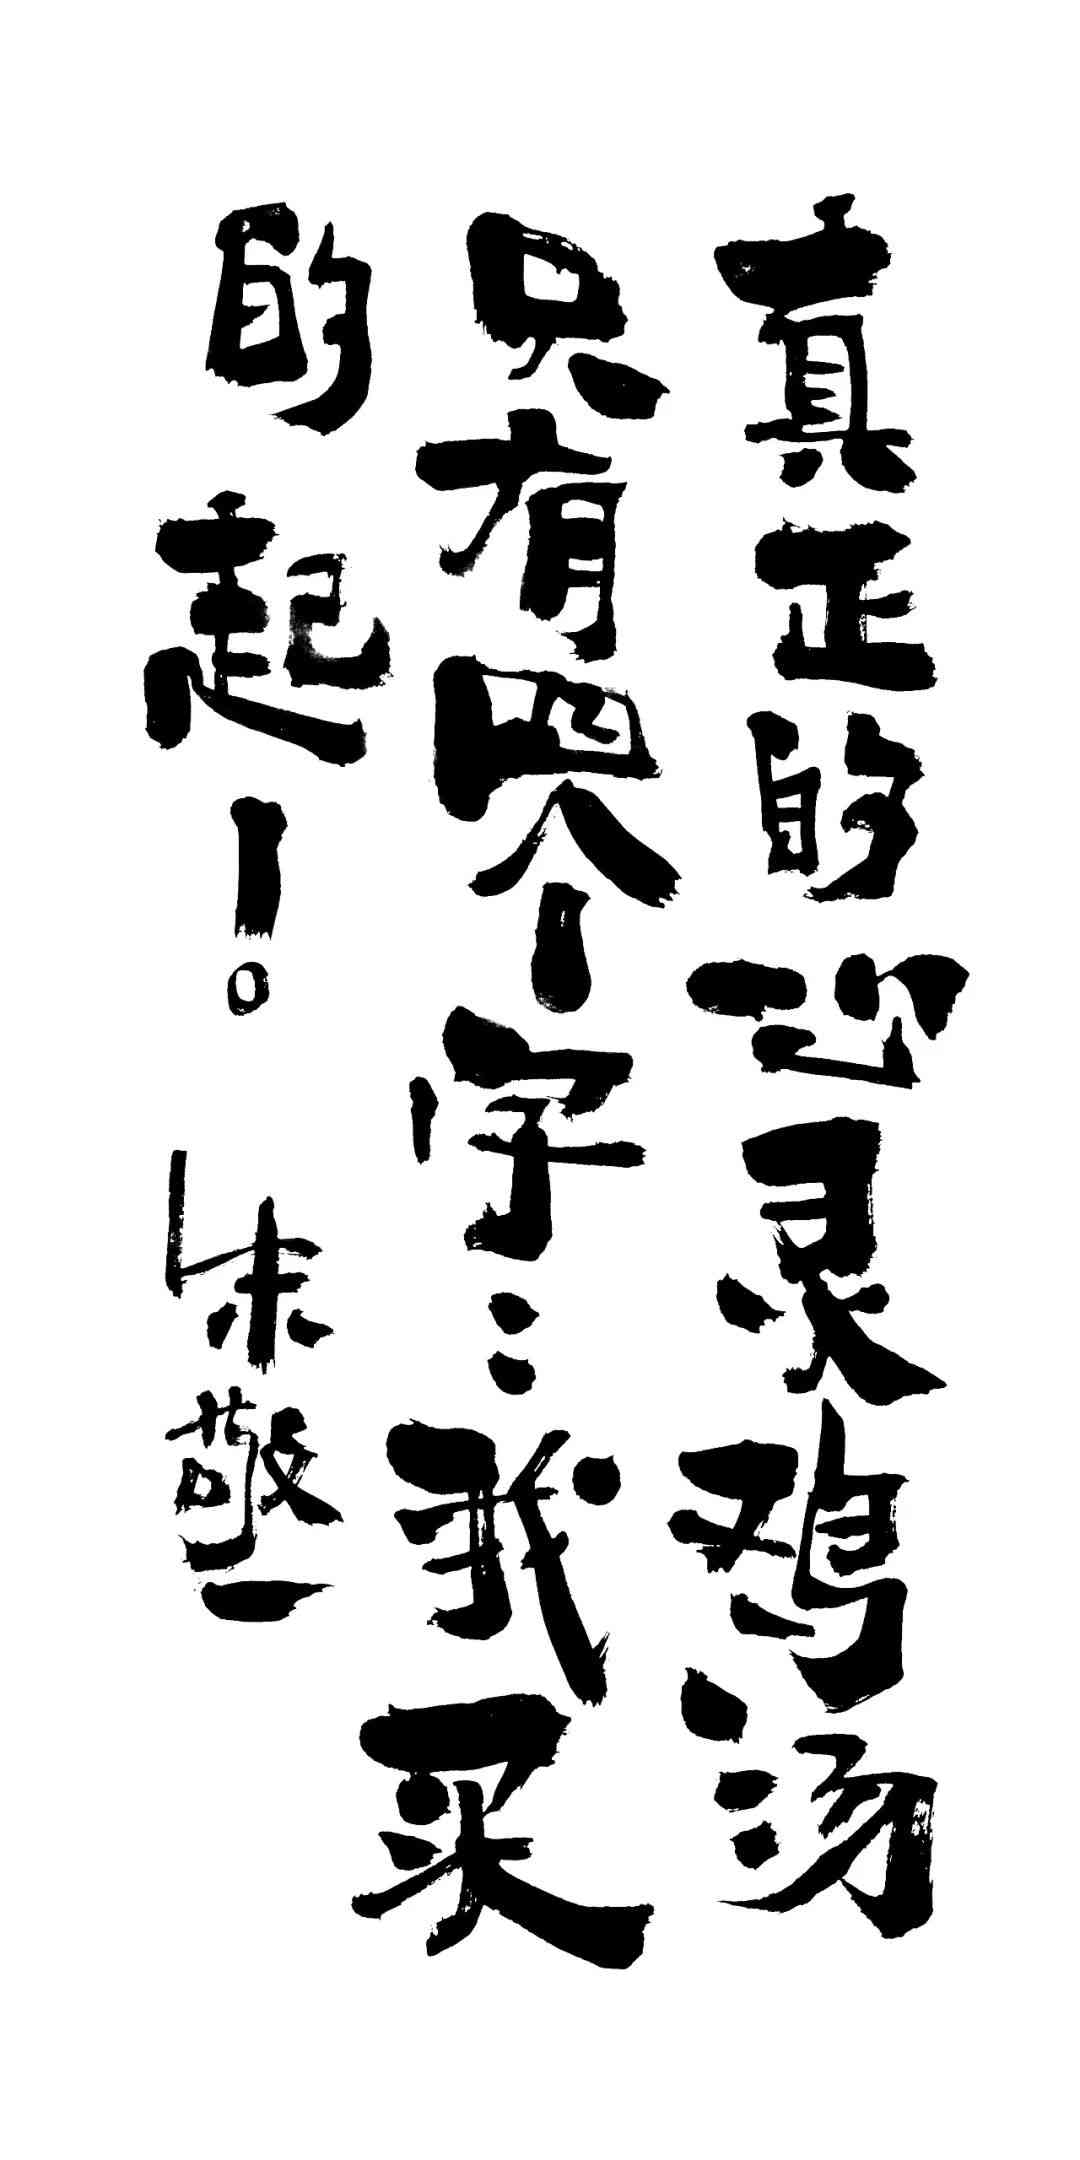 真正的心灵鸡汤
只有四个字：我买
的起！
朱敬一